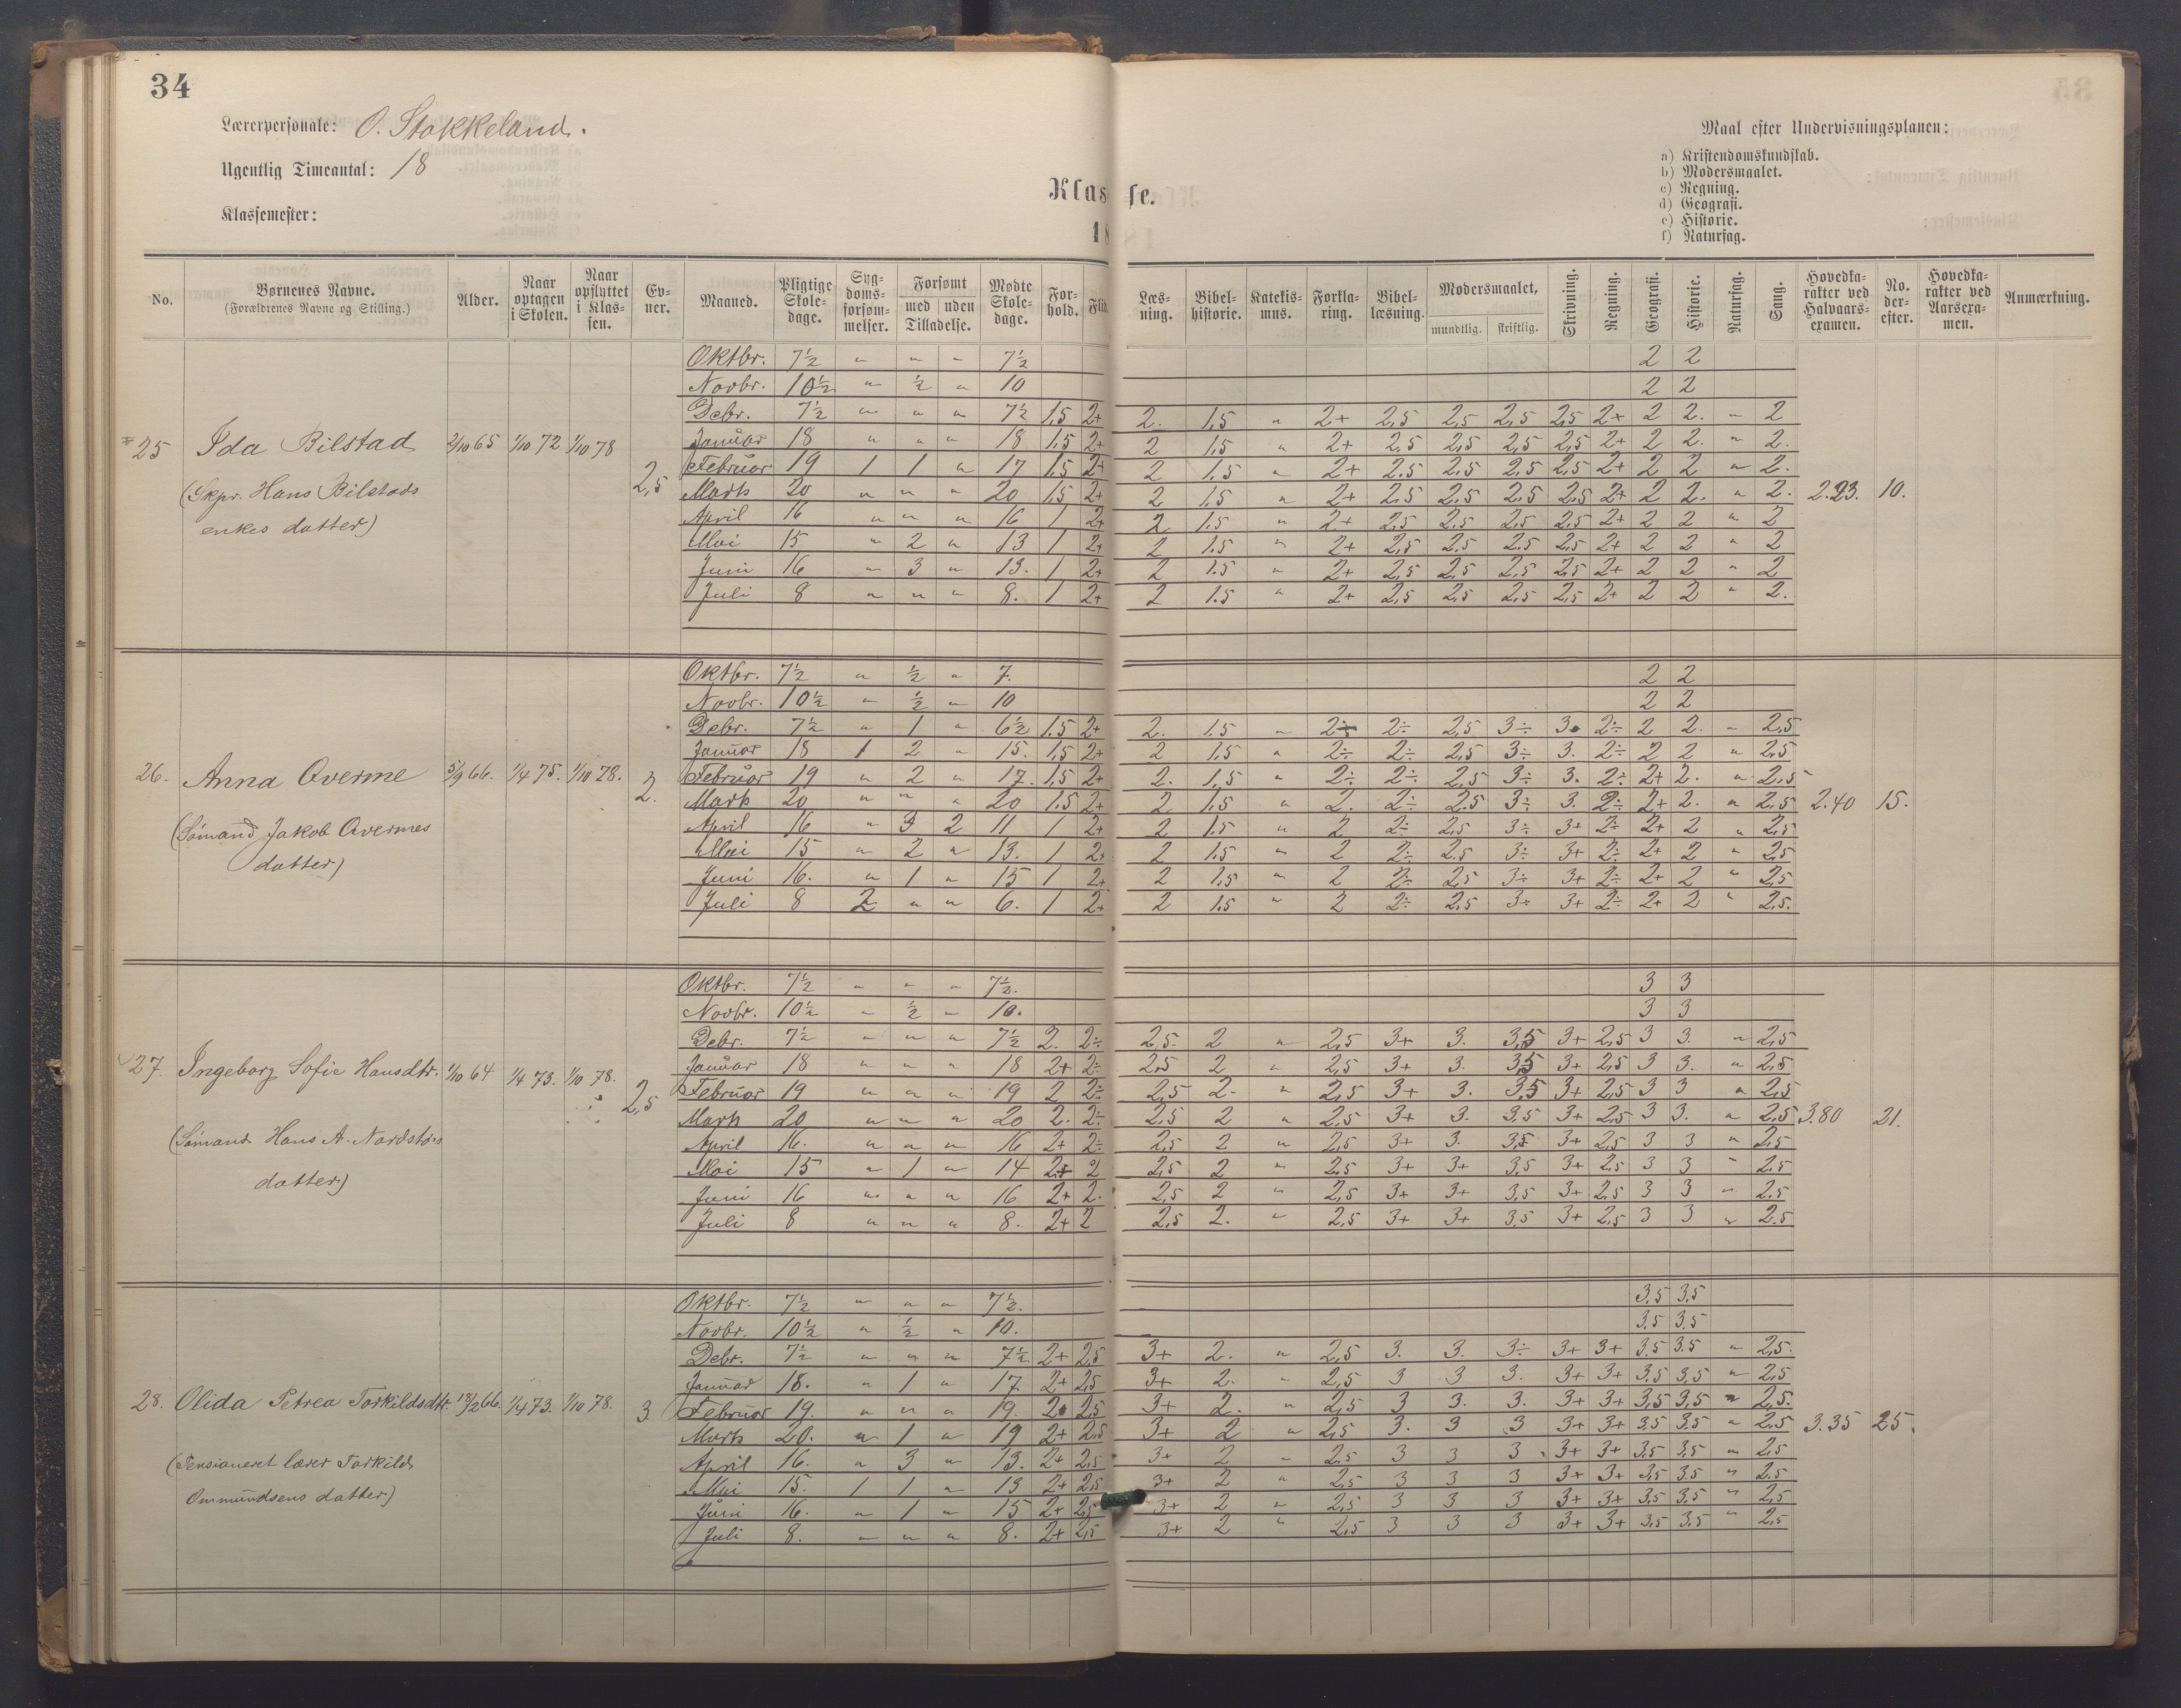 34
Lærerpersonale: O. Stokkeland.
Ugentlig Timeantal: 18
Klassemester:
Klasse.
18
Maal efter Undervisningsplanen:
a) Kristendomskundskab.
b) Modersmaalet.
c) Regning.
d) Geografi.
e) Historie.
f) Naturfag.
No. Børnenes Navne. (Forældrenes Navne og Stilling.) Alder. Naar optagen i Skolen. Naar opflyttet i Klassen. Evner. Maaned. Pligtige Skoledage. Sygdomsforsømmelser. Forsømt med uden Tilladelse. Mødte Skoledage. Forhold. Flid. Læsning. Bibelhistorie. Katekismus. Forklaring. Bibellæsning. Modersmaalet, mundtlig. skriftlig. Skrivning. Regning. Geografi. Historie. Naturfag. Sang. Hovedkarakter ved Halvaarsexamen. No. derefter. Hovedkarakter ved Aarsexamen. Anmærkning.
Oktbr. 7½ " " " 7½ 2 2
Novbr. 10½ " ½ " 10 2 2
Debr. 7½ " " " 7½ 1,5 2+ 2. 1,5 " 2+ 2,5 2,5 2,5 2,5 2+ 2 2. " 2
25 Ida Bilstad 2/10 65 1/10 72 1/10 78 Januar 18 " " " 18 1,5 2+ 2 1,5 " 2+ 2.5 2,5 2,5 2,5 2+ 2 2. " 2.
2,5 Februar 19 1 1 " 17 1,5 2+ 2 1,5 " 2+ 2.5 2.5 2,5 2,5 2+ 2 2 " 2.
(Skpr. Hans Bilstads Marts 20 " " " 20 1,5 2+ 2 1,5 " 2+ 2.5 2,5 2,5 2,5 2+ 2 2. " 2. 2.23. 10.
enkes datter) April 16 " " " 16 1 2+ 2 1.5 " 2+ 2,5 2,5 2,5 2,5 2+ 2 2 " 2
Mai 15 " 2 " 13 1 2+ 2 1.5 " 2+ 2,5 2,5 2.5 2,5 2+ 2 2 " 2
Juni 16 " 3 " 13. 1 2+ 2 1.5 " 2+ 2,5 2,5 2,5 2,5 2+ 2 2 " 2
Juli 8 " " " 8. 1 2+ 2 1.5 " 2+ 2,5 2,5 2,5 2,5 2+ 2 2 " 2.
Oktbr. 7½ " ½ " 7. 2 2
Novbr. 10½ " ½ " 10 2 2
Debr. 7½ " 1 " 6½ 1.5 2+ 2. 1.5 " 2÷ 2÷ 2,5 3÷ 3. 2÷ 2 2. " 2,5
Januar 18 1 2 " 15. 1,5 2+ 2 1,5 " 2÷ 2÷ 2,5 3÷ 3. 2÷ 2 2 " 2,5
26. Anna Overme 5/9 66. 1/4 75. 1/10 78. 2. Februar 19 " 2 " 17. 1,5 2+ 2. 1,5 " 2÷ 2÷ 2,5 3÷ 3. 2÷ 2+ 2. " 2,5
Marts 20 " " " 20 1,5 2+ 2 1,5 " 2. 2÷ 2.5 3÷ 3. 2÷ 2+ 2. " 2,5 2.40 15.
(Sømand Jakob Overmes April 16 " 3 2 11 1 2+ 2 1.5 " 2 2÷ 2,5 3÷ 3+ 2÷ 2+ 2 " 2,5
datter) Mai 15 " 2 " 13. 1 2+ 2 1,5 " 2 2÷ 2.5 3÷ 3+ 2÷ 2+ 2 " 2,5
Juni 16. " 1 " 15 1 2+ 2 1,5 " 2 2÷ 2,5 3÷ 3+ 2÷ 2+ 2 " 2,5
Juli 8 2 " " 6. 1 2+ 2 1.5 " 2 2÷ 2,5 3÷ 3+ 2÷ 2+ 2 " 2,5.
Oktbr. 7½ " " " 7½. 3 3
Novbr. 10½ " ½ " 10. 3 3
Debr. 7½ " " " 7½ 2. 2÷ 2,5. 2 " 2,5 3+ 3. 3,5 3+ 2,5 3 3. " 2,5
27. Ingeborg Sofie Hansdtr. 1/10 64 1/4 73. 1/10 78. Januar 18 " " " 18 2+ 2÷ 2,5 2 " 2,5 3+ 3. 3,5 3+ 2,5 3 3. " 2,5
2,5 Februar 19 " " " 19 2 2÷ 2,5 2. " 2,5 3+ 3. 3,5 3+ 2,5 3 3 " 2,5
Marts 20 " " " 20 2. 2÷ 2,5 2 " 2,5 3+ 3. 3.5 3+ 2,5 3 3. " 2,5 3.80 21.
(Sømand Hans A. Nordstøs April 16. " " " 16 2+ 2÷ 2,5 2 " 2,5 3+ 3. 3,5 3+ 2,5 3 3 " 2,5
datter) Mai 15 " 1 " 14 2+ 2 2,5 2 " 2,5 3+ 3+ 3,5 3+ 2,5 3 3 " 2.5
Juni 16 " " " 16 2+ 2. 2,5 2 " 2,5 3+ 3+ 3,5 3+ 2,5 3 3 " 2.5
Juli 8 " " " 8. 2+ 2 2,5 2. " 2,5 3+ 3+ 3,5 3+ 2,5 3 3 " 2.5
Oktbr. 7½ " " " 7½. 3,5 3,5
Novbr. 10½ " ½ " 10. 3,5 3,5
Debr. 7½ " " " 7½ 2+ 2,5 3+ 2. " 2,5 3. 3. 3÷ 3+ 3+ 3.5 3.5 " 2,5.
Januar 18. " 1 " 17 2+ 2,5 3+ 2. " 2,5 3 3 3. 3+ 3+ 3,5 3,5 " 2,5
28. Olida Petrea Torkildsdtr. 18/2 66. 1/4 73. 1/10 78. 3 Februar 19. " " " 19. 2 2,5 3+ 2. " 2,5 3 3. 3. 3+ 3+ 3,5 3,5 " 2,5.
Marts 20. " 1 " 19 2+ 2,5 3+ 2 " 2,5 3. 3 3 3+ 3+ 3.5 3.5 " 2.5 3.35 25.
(Pensioneret lærer Torkild April 16. " 3 " 13. 2+ 2,5 3+ 2 " 2.5 3 3 3 3+ 3+ 3,5 3,5 " 2,5
Ommundsens datter) Mai 15. 1 1 " 13 2+ 2,5 3+ 2 " 2,5 3 3 3 3+ 3+ 3,5 3.5 " 2.5
Juni 16. " 1 " 15 2+ 2,5 3+ 2 " 2,5 3 3 3 3+ 3+ 3,5 3,5 " 2,5
Juli 8. " " " 8. 2+ 2,5 3+ 2 " 2,5 3 3 3 3+ 3+ 3,5 3.5 " 2,5